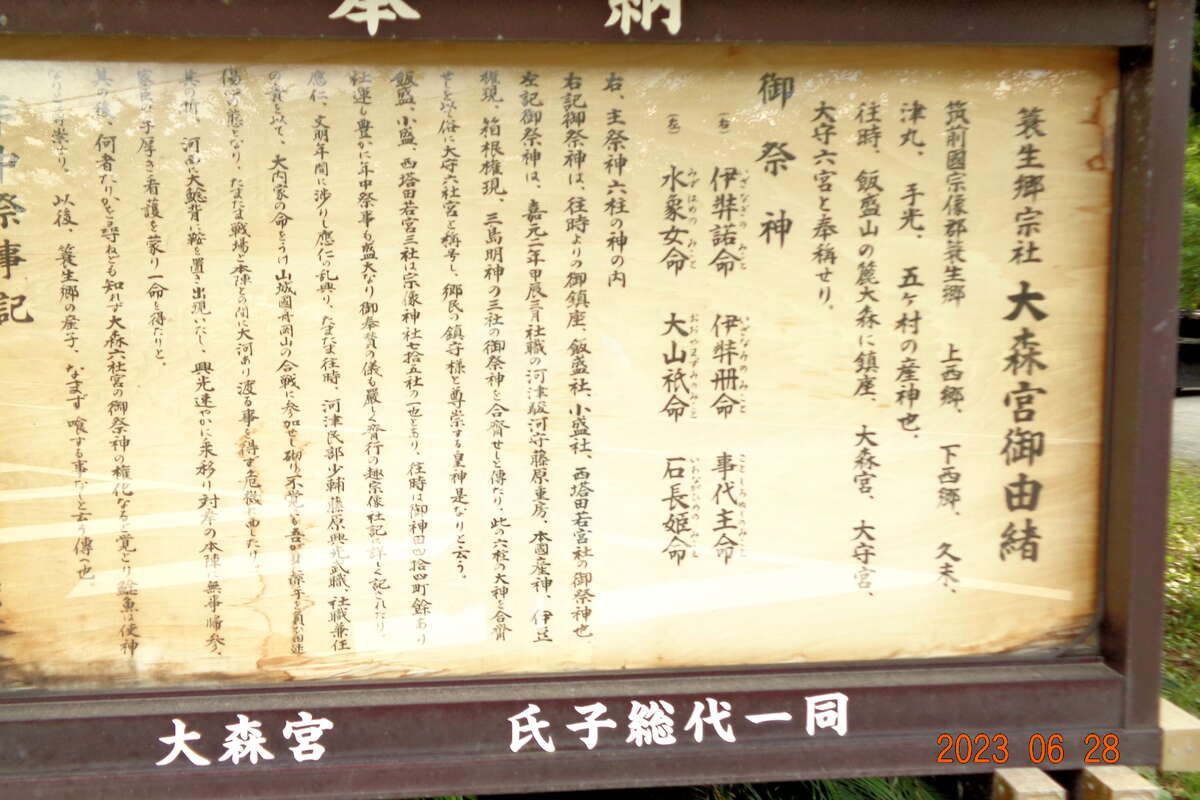 奉納
簑生郷宗社 大森宮御由緒
筑前國宗像郡簑生郷 上西郷、下西郷、久末、
津丸、手光、五ヶ村の産神也、
往時、飯盛山の麓大森に鎮座、大森宮、大守宮、
大守六宮と奉稱せり。
御祭神
(右) 伊弉諾命 伊弉冊命 事代主命
いざなぎのみこと いざなみのみこと ことしろぬしのみこと
(左) 水象女命 大山祇命 石長姫命
みずはめのみこと おおやまずみのみこと いわながひめのみこと
右、主祭神六柱の神の内
右記御祭神は、往時よりの御鎮座、飯盛社、小盛社、西塔田若宮社の御祭神也
左記御祭神は、嘉元二年甲辰三月社職の河津駿河守藤原重房、本國産神、伊豆
権現、箱根権現、三島明神の三社の御祭神を合齊せしと傳たり、此の六柱の大神を合齊
せしを以て俗に大守六社宮と稱号し、郷民の鎮守様と尊崇する皇神是なりと云う。
飯盛、小盛、西塔田若宮三社は宗像神社七拾五社の一也とあり、往時は御神田四拾四町餘あり
社運も豊かに年中祭事も盛大なり御奉賛の儀も嚴しく齊行の趣宗像社記に詳しく記されたり、
應仁、文明年間に渉りし應仁の乱興り、たまたま往時、河津民部少輔藤原興光武職、社職兼任
の責を以て、大内家の命をうけ山城國舟岡山の合戦に参加せし砌り不覚にも
傷の態となり、たまたま戦場と本陣との間に大河あり渡る事を得ず危機に
其の折、河面に大鯰背に鞍を置き出現いたし、興光速やかに乗移り対岸の本陣に無事帰参、
の手厚き看護を蒙り一命を得たりと。
其の後、何者たりかを尋ねども知れず大森六社宮の御祭神の権化なると覚とり鯰魚は使神
なりと尊崇なり。以後、簑生郷の産子、なまず喰する事なしと云う傳へ也。
年中祭事記
大森宮 氏子総代一同
2023 06 28